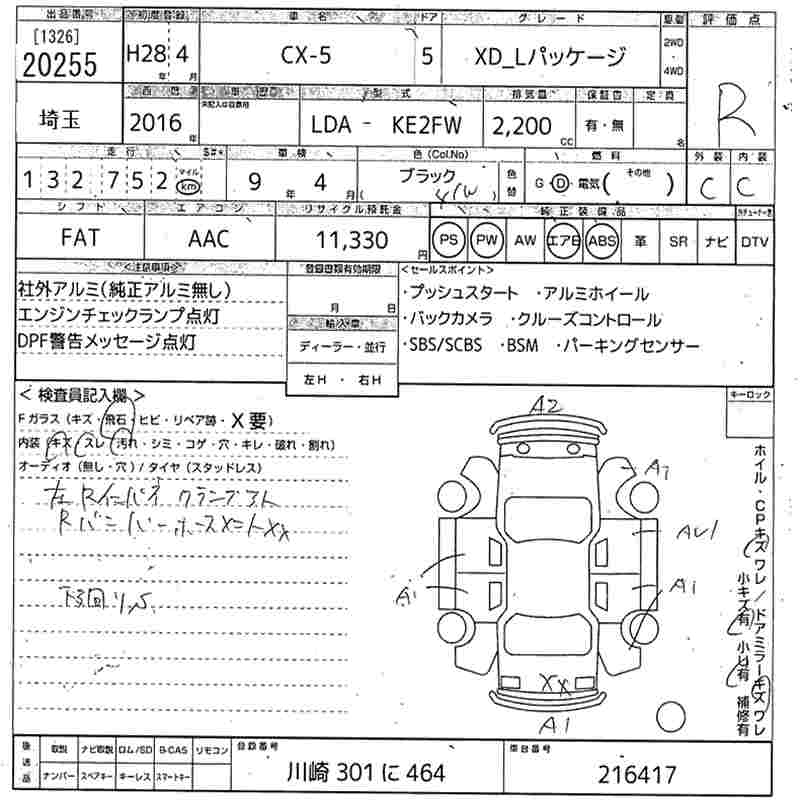 出品番号 初度登録 車名 ドア グレード 駆動 評価点
[1326]
20255 H28年 4月 CX-5 5 XD_Lパッケージ 2WD・4WD R
西暦 車歴 型式 排気量 保証書 定員
未記入は自家用
埼玉 2016年 LDA - KE2FW 2,200cc 有・無 名
走行 S#* 車検 色(Col.No) 燃料 外装 内装
132752 マイル km 9年 4月 ブラック ( ) 色替 G・D・電気 (その他) C C
シフト エアコン リサイクル預託金 純正装備品
FAT AAC 11,330円 PS PW AW エアB ABS 革 SR ナビ DTV
<注意事項> 登録書類有効期限 <セールスポイント>
社外アルミ(純正アルミ無し) 月 日 ・プッシュスタート ・アルミホイール
エンジンチェックランプ点灯 輸入車 ・バックカメラ ・クルーズコントロール
DPF警告メッセージ点灯 ディーラー・並行 ・SBS/SCBS ・BSM ・パーキングセンサー
左H ・ 右H
<検査員記入欄> キーロック
Fガラス(キズ・飛石・ヒビ・リペア跡・X要)
内装(キズ・スレ・汚れ・シミ・コゲ・穴・キレ・破れ・割れ)
オーディオ(無し・穴)/タイヤ(スタッドレス)
A2
A1
A1
A1
XX
A1
ホイル・CPキズワレ/ドアミラーキズワレ
小キズ有 小凹有 補修有
後送品 取説 ナビ取説 ロム/SD B-CAS リモコン 登録番号 車台番号
ナンバー スペアキー キーレス スマートキー 川崎 301 に 464 216417